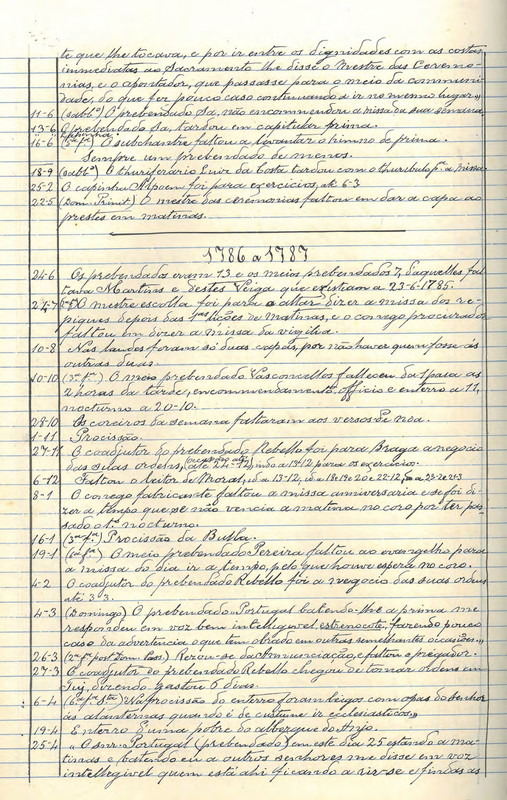 te que lhe tocava, e por ir entre os dignidades com as costas
immediatas ao Sacramento lhe disse o Mestre das Ceremo-
nias, e o apontador, que passasse para o meio da communi-
dade, do que fez pouco caso continuando a ir no mesmo lugar"
11-6 (sabbº) O prebendado Sa, não encommendou a missa da sua semana,
13-6 O prebendado Sa, tardou em capitular prima.
16-6 (5ª fª) O subchantre faltou a levantar o himno de prima.
Sempre um prebendado de menos.
18-9 (sabbº) O thuriferario Luiz da Costa tardou com o thuribulo pª a missa.
25-2 O capinha Alpoem foi para exercicios, até 6-3
22-5 (Dom. Trinit) O mestre das ceremonias faltou em dar a capa ao
prestes em matinas.
1786 a 1787
24-6 Os prebendados eram 13 e os meios prebendados 7, daquelles fal-
tava Martins e destes Veiga que existiam a 23-6-1785.
27-7 O mestre escolla foi para o altar dizer a missa dos re-
piques depois das 1as lições de matinas, e o conego procurador
faltou em dizer a missa da vigilia.
10-8 Nas laudes foram só duas capas, por não haver quem fosse ás
outras duas.
10-10 (3ª fª) O meio prebendado Vasconcellos falleceu da 1 para as
2 horas da tarde, encommendamento, officio e enterro a 11,
nocturno a 20-10.
28-10 Os coreiros da semana faltaram aos versos de noa.
1-11 Procissão.
27-11 O coadjutor do prebendado Rebello foi para Braga a negocio
das suas ordens, até 24-12, indo a 13-12 para os exercicio.
6-12 Faltou o leitor de Moral, id a 13-12, id a 18 e 19 e 20 e 22-12, e a 23-2 e 1-3
8-1 O conego fabricante faltou a missa anniversaria e se foi di-
zer a tempo que se não vencia a matina no coro por ter pas-
sado o 1º nocturno.
16-1 (3ª fª) Procissão da Bulla.
19-1 (6ª fª) O meio prebendado Pereira faltou ao evangelho para
a missa do dia ir a tempo, pelo que houve espera no coro.
4-2 O coadjutor do prebendado Rebello foi a negocio das suas ordens
até 3-3.
4-3 (Domingo) O prebendado "Portugal batendo-lhe a prima me
respondeu em voz bem intellegivel, estrenoute, fazendo pouco
caso da advertencia o que tem obrado em outras semelhantes occasiões"
26-3 (2ª fª post Dom. Pass.) Rezou-se da Annunciação, e faltou o prégador.
27-3 O coadjutor do prebendado Rebello chegou de tomar ordens em
Tuy, dizendo gastou 6 dias.
6-4 (6ª fª Stª) Na procissão do enterro foram leigos com opas do senhor
ás alanternas quando é de custume ir ecclesiasticos"
19-4 Enterro d'uma pobre do albergue do Anjo.
25-4 "O snr. Portugal (prebendado) em este dia 25 estando a ma-
tinas e batendo eu a outros senhores me disse em voz
intellegivel quem está ahi ficando a rir-se e findas as